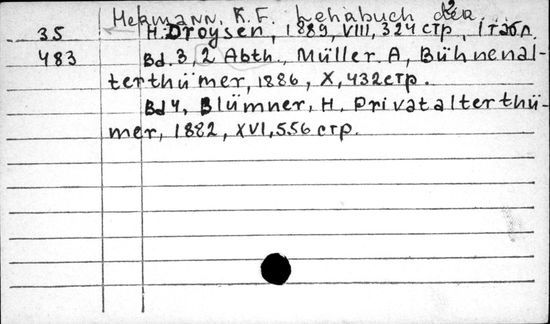 Hermann, K. F. Lehrbuch der 2
35 H. Droysen, 1889, VIII, 324 стр, 1 табл.
483 Bd. 3, 2 Abth., Müller A, Bühnenal-
terthümer, 1886, X, 432 стр.
Bd 4, Blümner, H. Privatalterthü-
mer, 1882, XVI, 556 стр.